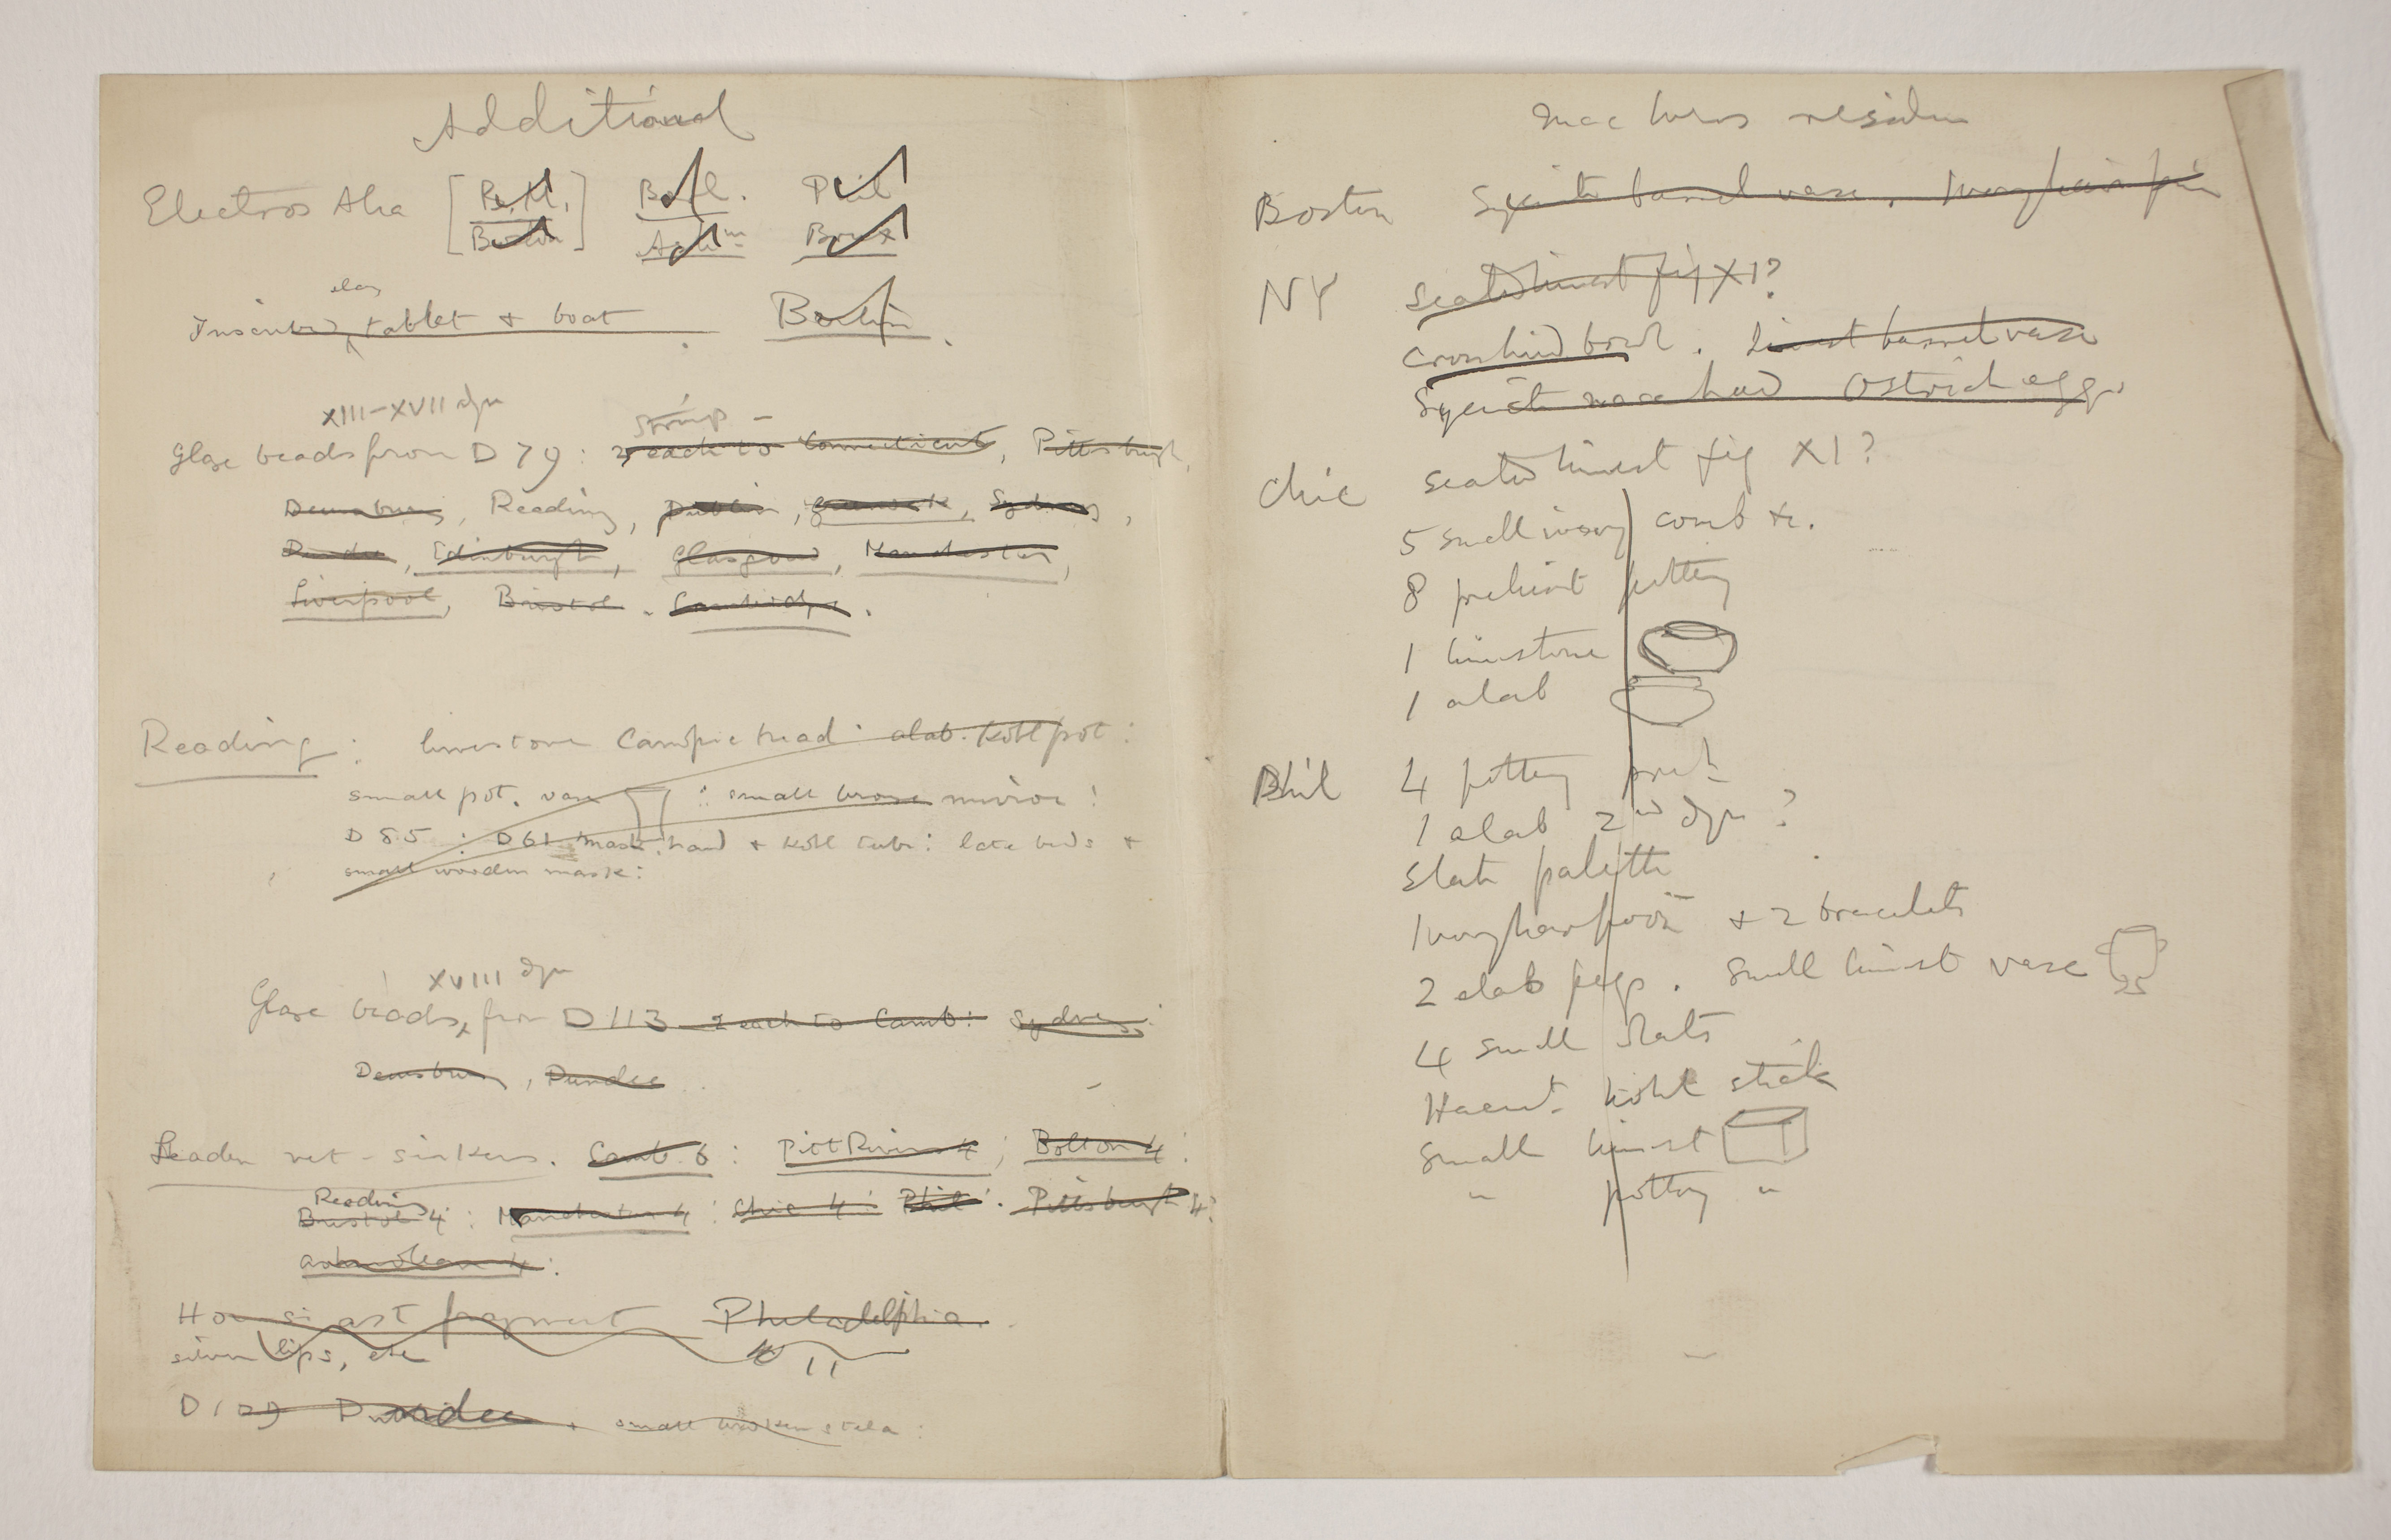 Additional
Electros Aha [Br. M. Bost. Phil
Boston] Ashm Brux
clay
Inscribed tablet + boat Berlin.
XIII-XVII dyn
string
Glaze beads from D 79: 2 each to Connecticut, Pittsburgh,
Dewsbury, Reading, Dublin, Greenock, Sydney,
Dundee, Edinburgh, Glasgow, Manchester,
Liverpool, Bristol. Cambridge.
Reading: limestone Canopic head: alab. Kohl pot:
small pot. vase : small bronze mirror:
D 85 : D 61 mask, hand + Kohl tube: late beads +
small wooden mask:
XVIII dyn
Glaze beads, from D 113 2 each to Camb: Sydney:
Dewsbury, Dundee
Leaden net-sinkers. Camb. 6: Pitt Rivers 4; Bolton 4:
Reading
Bristol 4: Manchester 4: Chic 4: Phil: Pittsburgh 4:
Ashmolean 4:
Hor si ast fragment Philadelphia.
silver lips, etc
D 129 Dundee + small broken stela:
residue
Boston Syenite barrel vase. Ivory hair pin
NY Seated limest fig X1?
Crosslined bowl. Limest barrel vase
Syenite mace head Ostrich egg
Chic Seated limest fig X1?
5 small ivory comb &c.
8 prehist pottery
1 limestone
1 alab
Phil 4 pottery preh
1 alab 2nd dyn?
Slate palette
Ivory harpoon + 2 bracelets
2 alab pegs. Small limest vase
4 small slats
Haemt. Kohl stick
Small limest
" pottery "